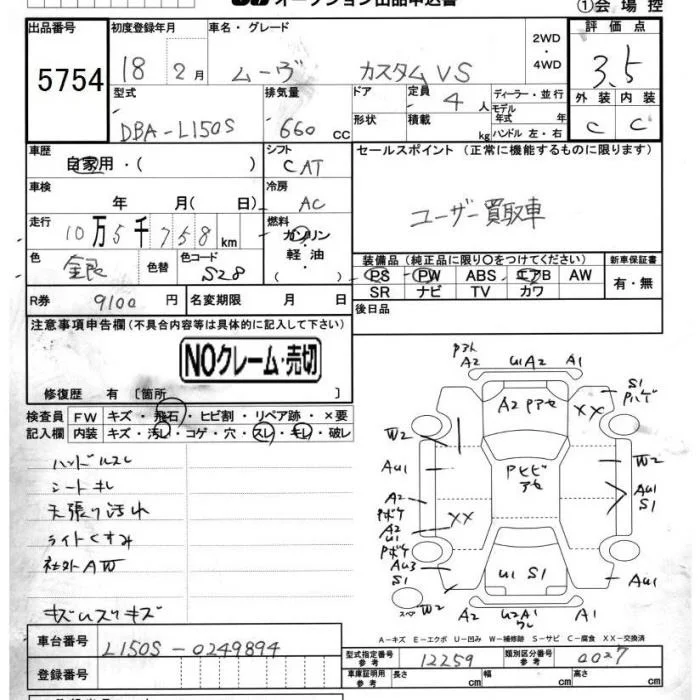 オークション出品申込書
①会場控
出品番号 初度登録年月 車名・グレード 2WD ・4WD 評価点
5754 18 2月 ムーヴ カスタムVS 3.5
型式 排気量 ドア 定員 4人 ディーラー・並行 外装 内装
DBA-L150S 660cc 形状 積載 kg モデル年式 年 ハンドル 左・右 C C
車歴 自家用・( ) シフト CAT セールスポイント (正常に機能するものに限ります)
車検 年 月( 日) 冷房 AC ユーザー買取車
走行 10万5千758km 燃料 ガソリン 軽油 ( )
装備品 (純正品に限り○をつけてください) 新車保証書
色 銀 色替 色コード S28 PS PW ABS エアB AW 有・無
SR ナビ TV カワ
R券 9100円 名変期限 月 日 後日品
注意事項申告欄(不具合内容等は具体的に記入して下さい)
NOクレーム・売切
修復歴 有 〔箇所 〕
検査員 FW キズ・飛石・ヒビ割・リペア跡・×要
記入欄 内装 キズ・汚レ・コゲ・穴・スレ・キレ・破レ
ハンドルスレ
シートキレ
天張り汚れ
ライトくすみ
社外AW
A2 U1A2 A1
A2 Pアセ
XX
S1
Pハゲ
W2
W2
AU1
Pヒビ
アセ
AU1
S1
A2
Pボケ
XX
A2
U1
Pボケ
AU3
S1
U1 S1
AU1
スペア
W2
A2 U2A1 A1
A-キズ E-エクボ U-凹み W-補修跡 S-サビ C-腐食 XX-交換済
車台番号 L150S-0249894
型式指定番号 参考 12259 類別区分番号 参考 0027
登録番号
車庫証明用 参考 長さ cm 幅 cm 高さ cm